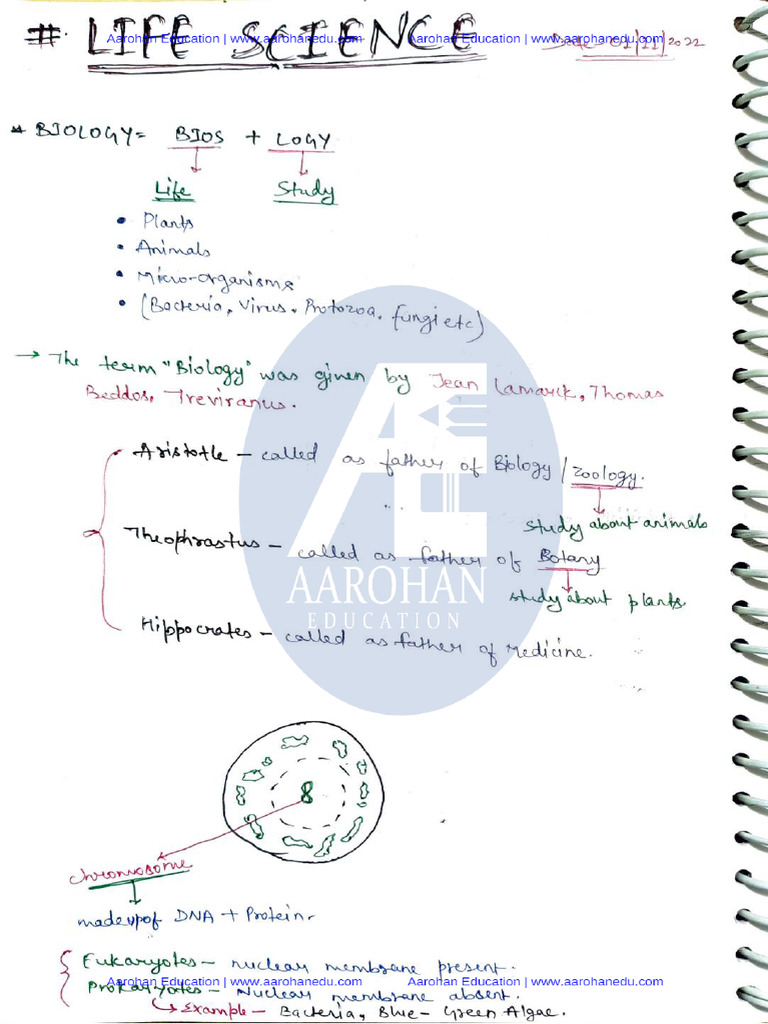 # LIFE SCIENCE
Aarohan Education | www.aarohanedu.com Aarohan Education | www.aarohanedu.com
Date - 01/11/2022
* BIOLOGY = BIOS + LOGY
Life Study
• Plants
• Animals
• Micro-organisms
• (Bacteria, Virus, Protozoa, fungi etc)
→ The term "Biology" was given by Jean Lamarck, Thomas
Beddos, Treviranus.
Aristotle - called as father of Biology / Zoology.
Study about animals
Theophrastus - called as father of Botany
study about plants
AAROHAN
EDUCATION
Hippocrates - called as father of Medicine.
chromosome
madeup of DNA + Protein.
Eukaryotes - nuclear membrane present.
Aarohan Education | www.aarohanedu.com Aarohan Education | www.aarohanedu.com
Prokaryotes - Nuclear membrane absent.
Example - Bacteria, Blue-Green Algae.